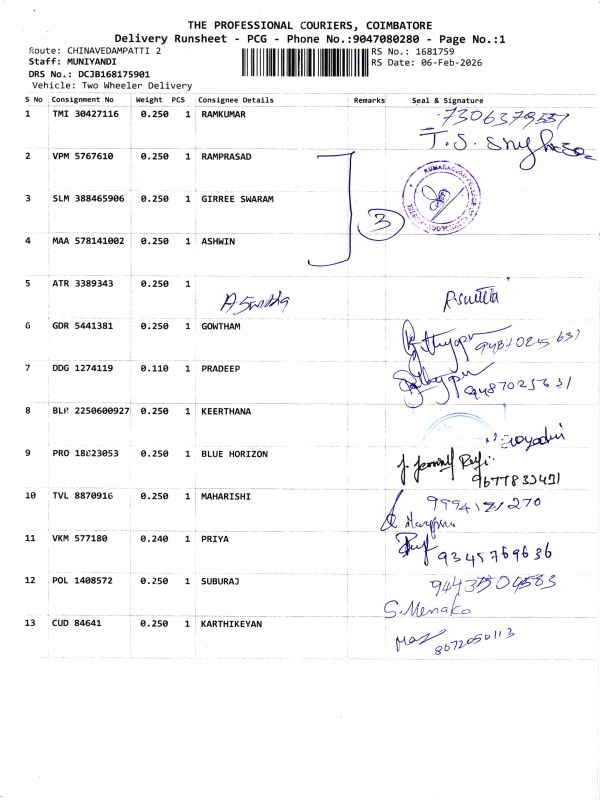 THE PROFESSIONAL COURIERS, COIMBATORE
Delivery Runsheet - PCG - Phone No.:9047080280 - Page No.:1
Route: CHINAVEDAMPATTI 2 RS No.: 1681759
Staff: MUNIYANDI RS Date: 06-Feb-2026
DRS No.: DCJB168175901
Vehicle: Two Wheeler Delivery
S No Consignment No Weight PCS Consignee Details Remarks Seal & Signature
1 TMI 30427116 0.250 1 RAMKUMAR
2 VPM 5767610 0.250 1 RAMPRASAD
3 SLM 388465906 0.250 1 GIRREE SWARAM 3
4 MAA 578141002 0.250 1 ASHWIN
5 ATR 3389343 0.250 1
6 GDR 5441381 0.250 1 GOWTHAM
7 DDG 1274119 0.110 1 PRADEEP 9487025631
8 BLR 2250600927 0.250 1 KEERTHANA
9 PRO 18023053 0.250 1 BLUE HORIZON
9677833421
10 TVL 8870916 0.250 1 MAHARISHI
11 VKM 577180 0.240 1 PRIYA 9345769636
12 POL 1408572 0.250 1 SUBURAJ
S. Menaka
13 CUD 84641 0.250 1 KARTHIKEYAN
8072050113